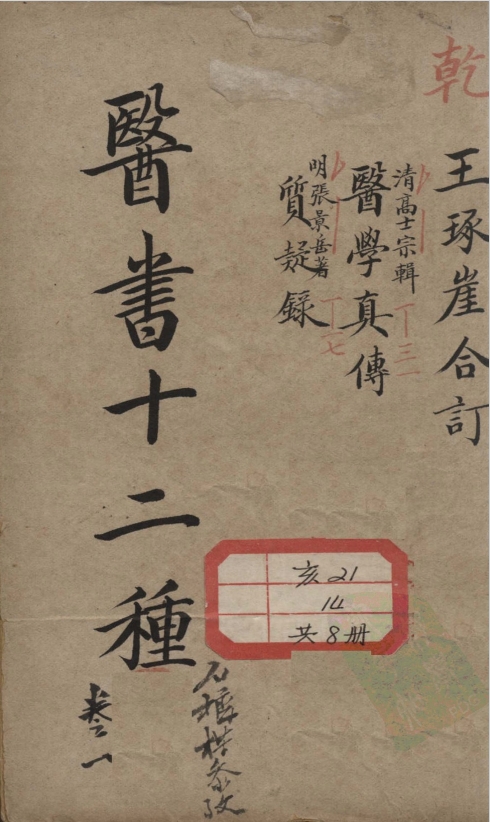 乾
王琢崖合訂
清高士宗輯
醫學真傳
丁三一
明張景岳著
質疑錄
丁七
醫書十二種
卷一
亥21
14
共8册